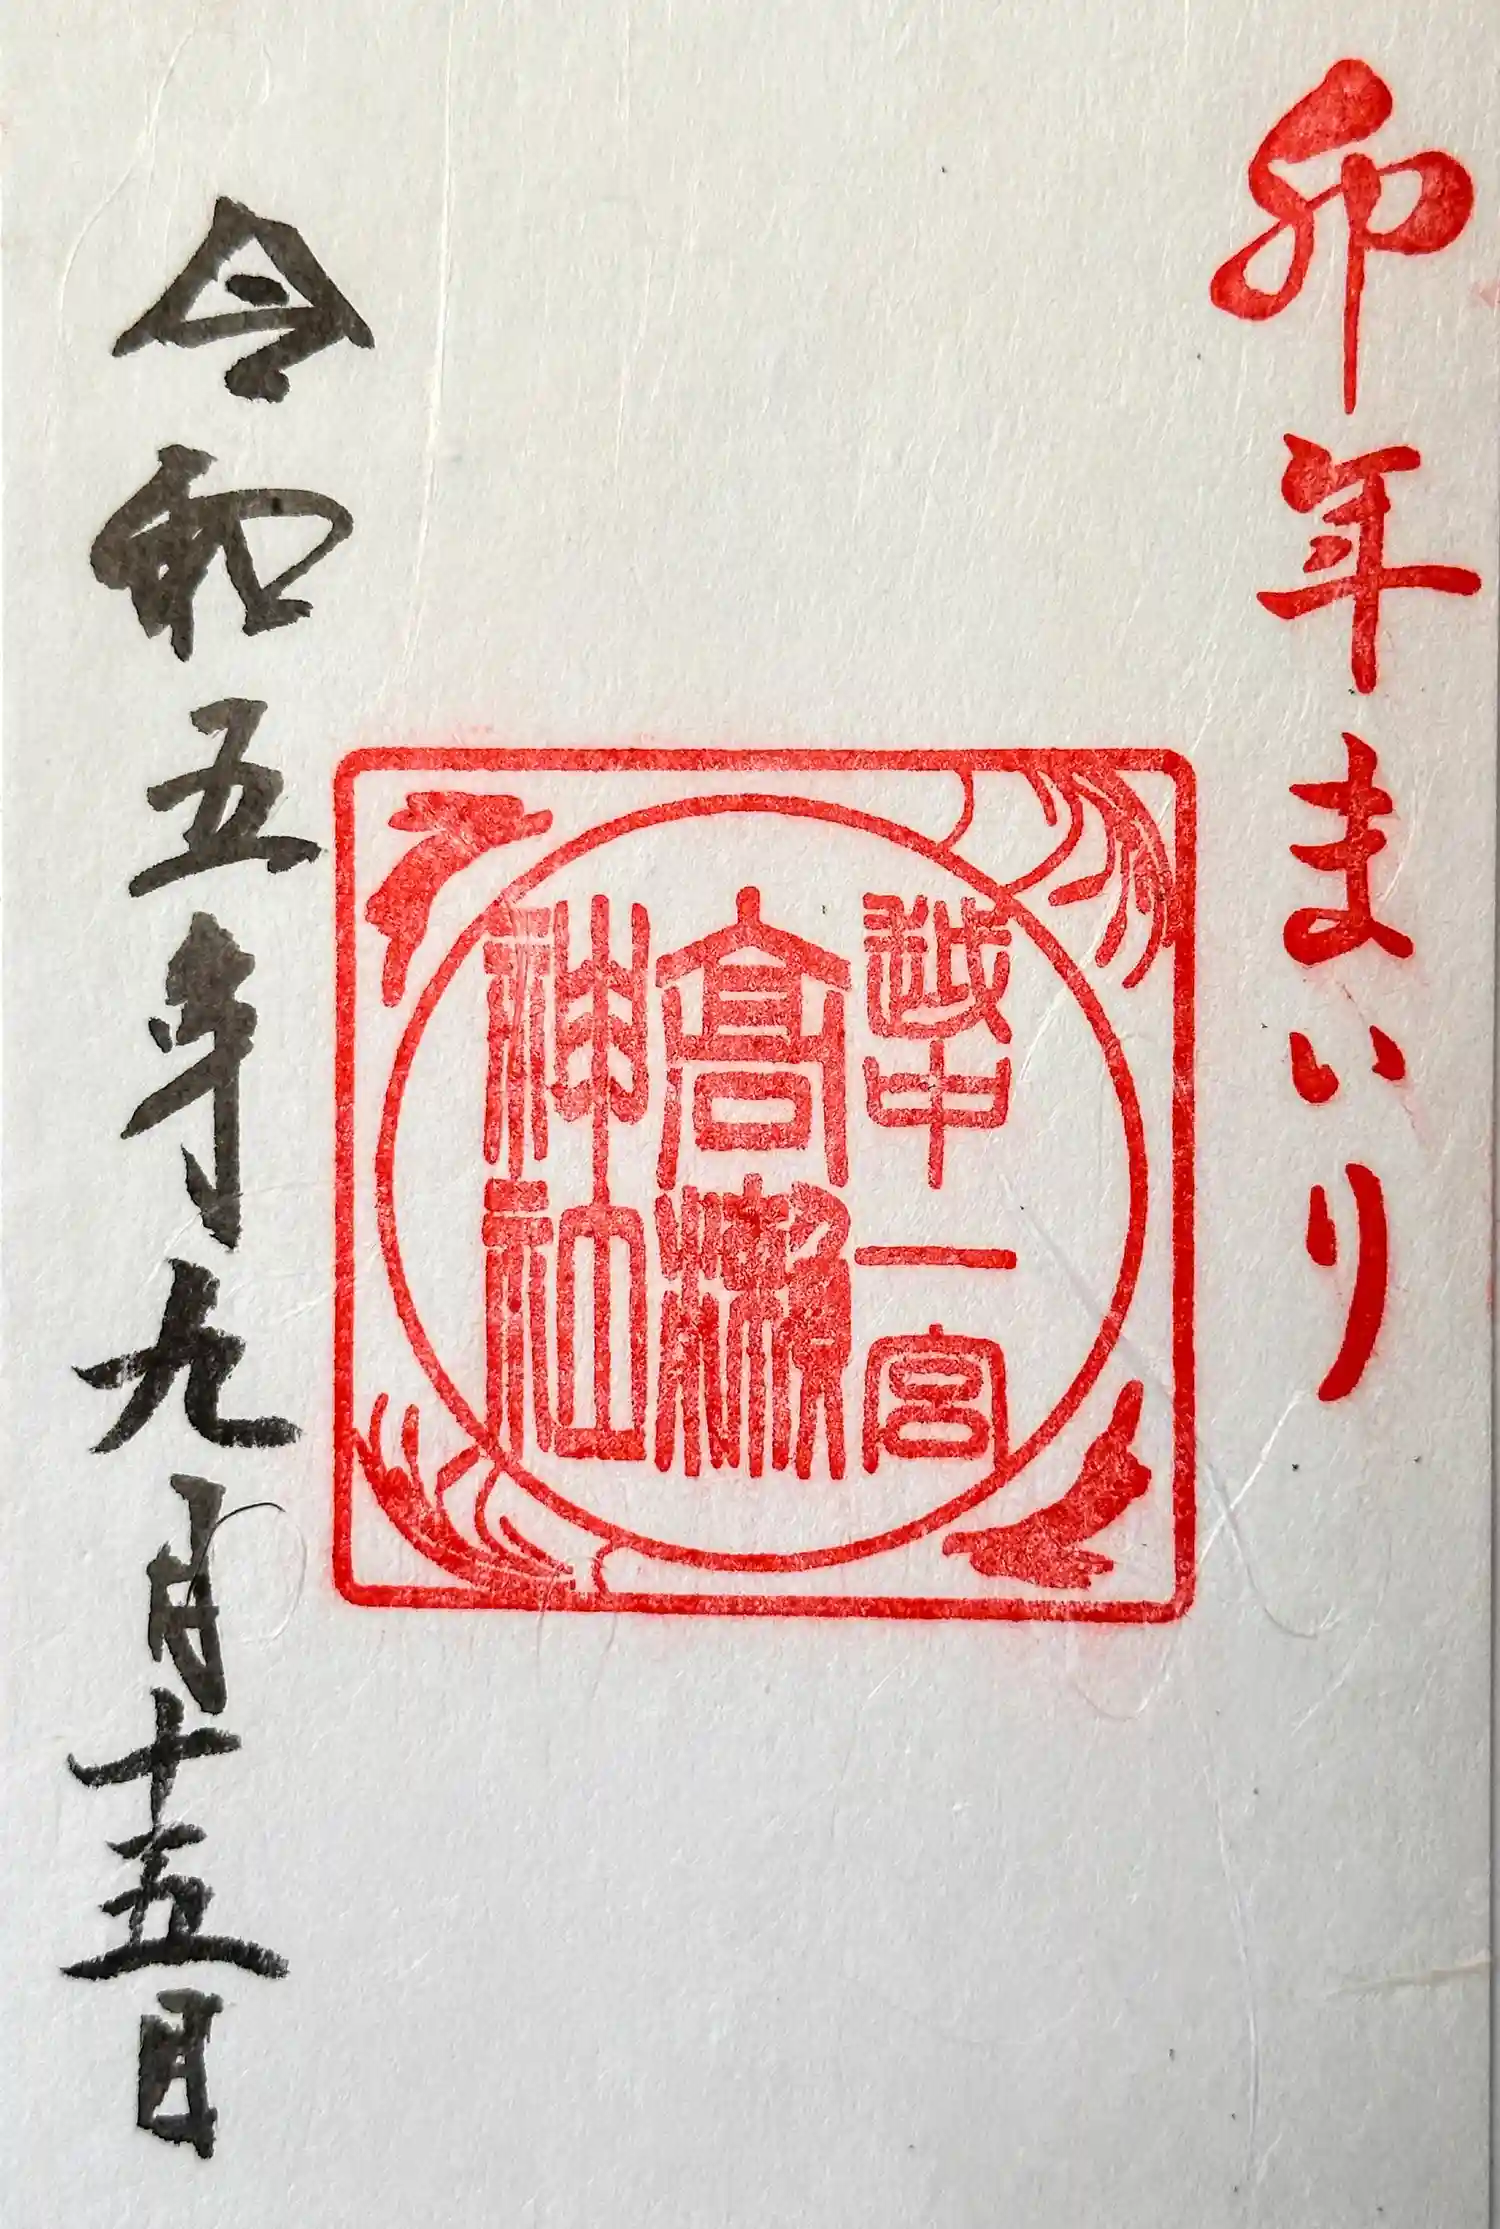 卯年まいり
越中一宮
高瀬神社
令和五年九月十五日